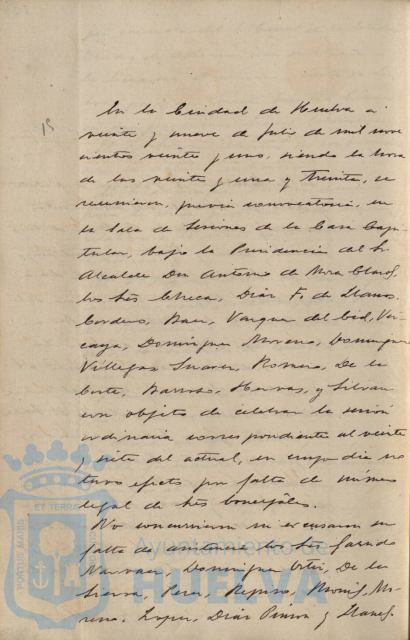 En la Ciudad de Huelva a
15
veinte y nueve de Julio de mil nove
cientos veinte y uno, siendo la hora
de las veinte y una y treinta, se
reunieron, previa convocatoria, en
la Sala de Sesiones de la Casa Capi
tular, bajo la Presidencia del Sr.
Alcalde Don Antonio de Mora Claros,
los Sres Checa, Diaz F. de Llanos,
Cordero, Baer, Vazquez del Cid, Viz
caya, Dominguez Moreno, Dominguez
Villegas Suarez, Romero, De la
Corte, Barroso, Hervas, y Silvan
con objeto de celebrar la sesión
ordinaria correspondiente al veinte
y siete del actual, en cuyo dia no
tuvo efecto por falta de número
legal de Sres Concejales.
No concurrieron ni escusaron su
falta de asistencia los Sres Garrido
Narvaez, Dominguez Ortiz, De la
Sierra, Perez, Mo
reno, Lopez, Diaz Pinzon y Llanes.
PORTUS MARIS
ET TERRAE
CUSTODIA
Ayuntamiento de
HUELVA